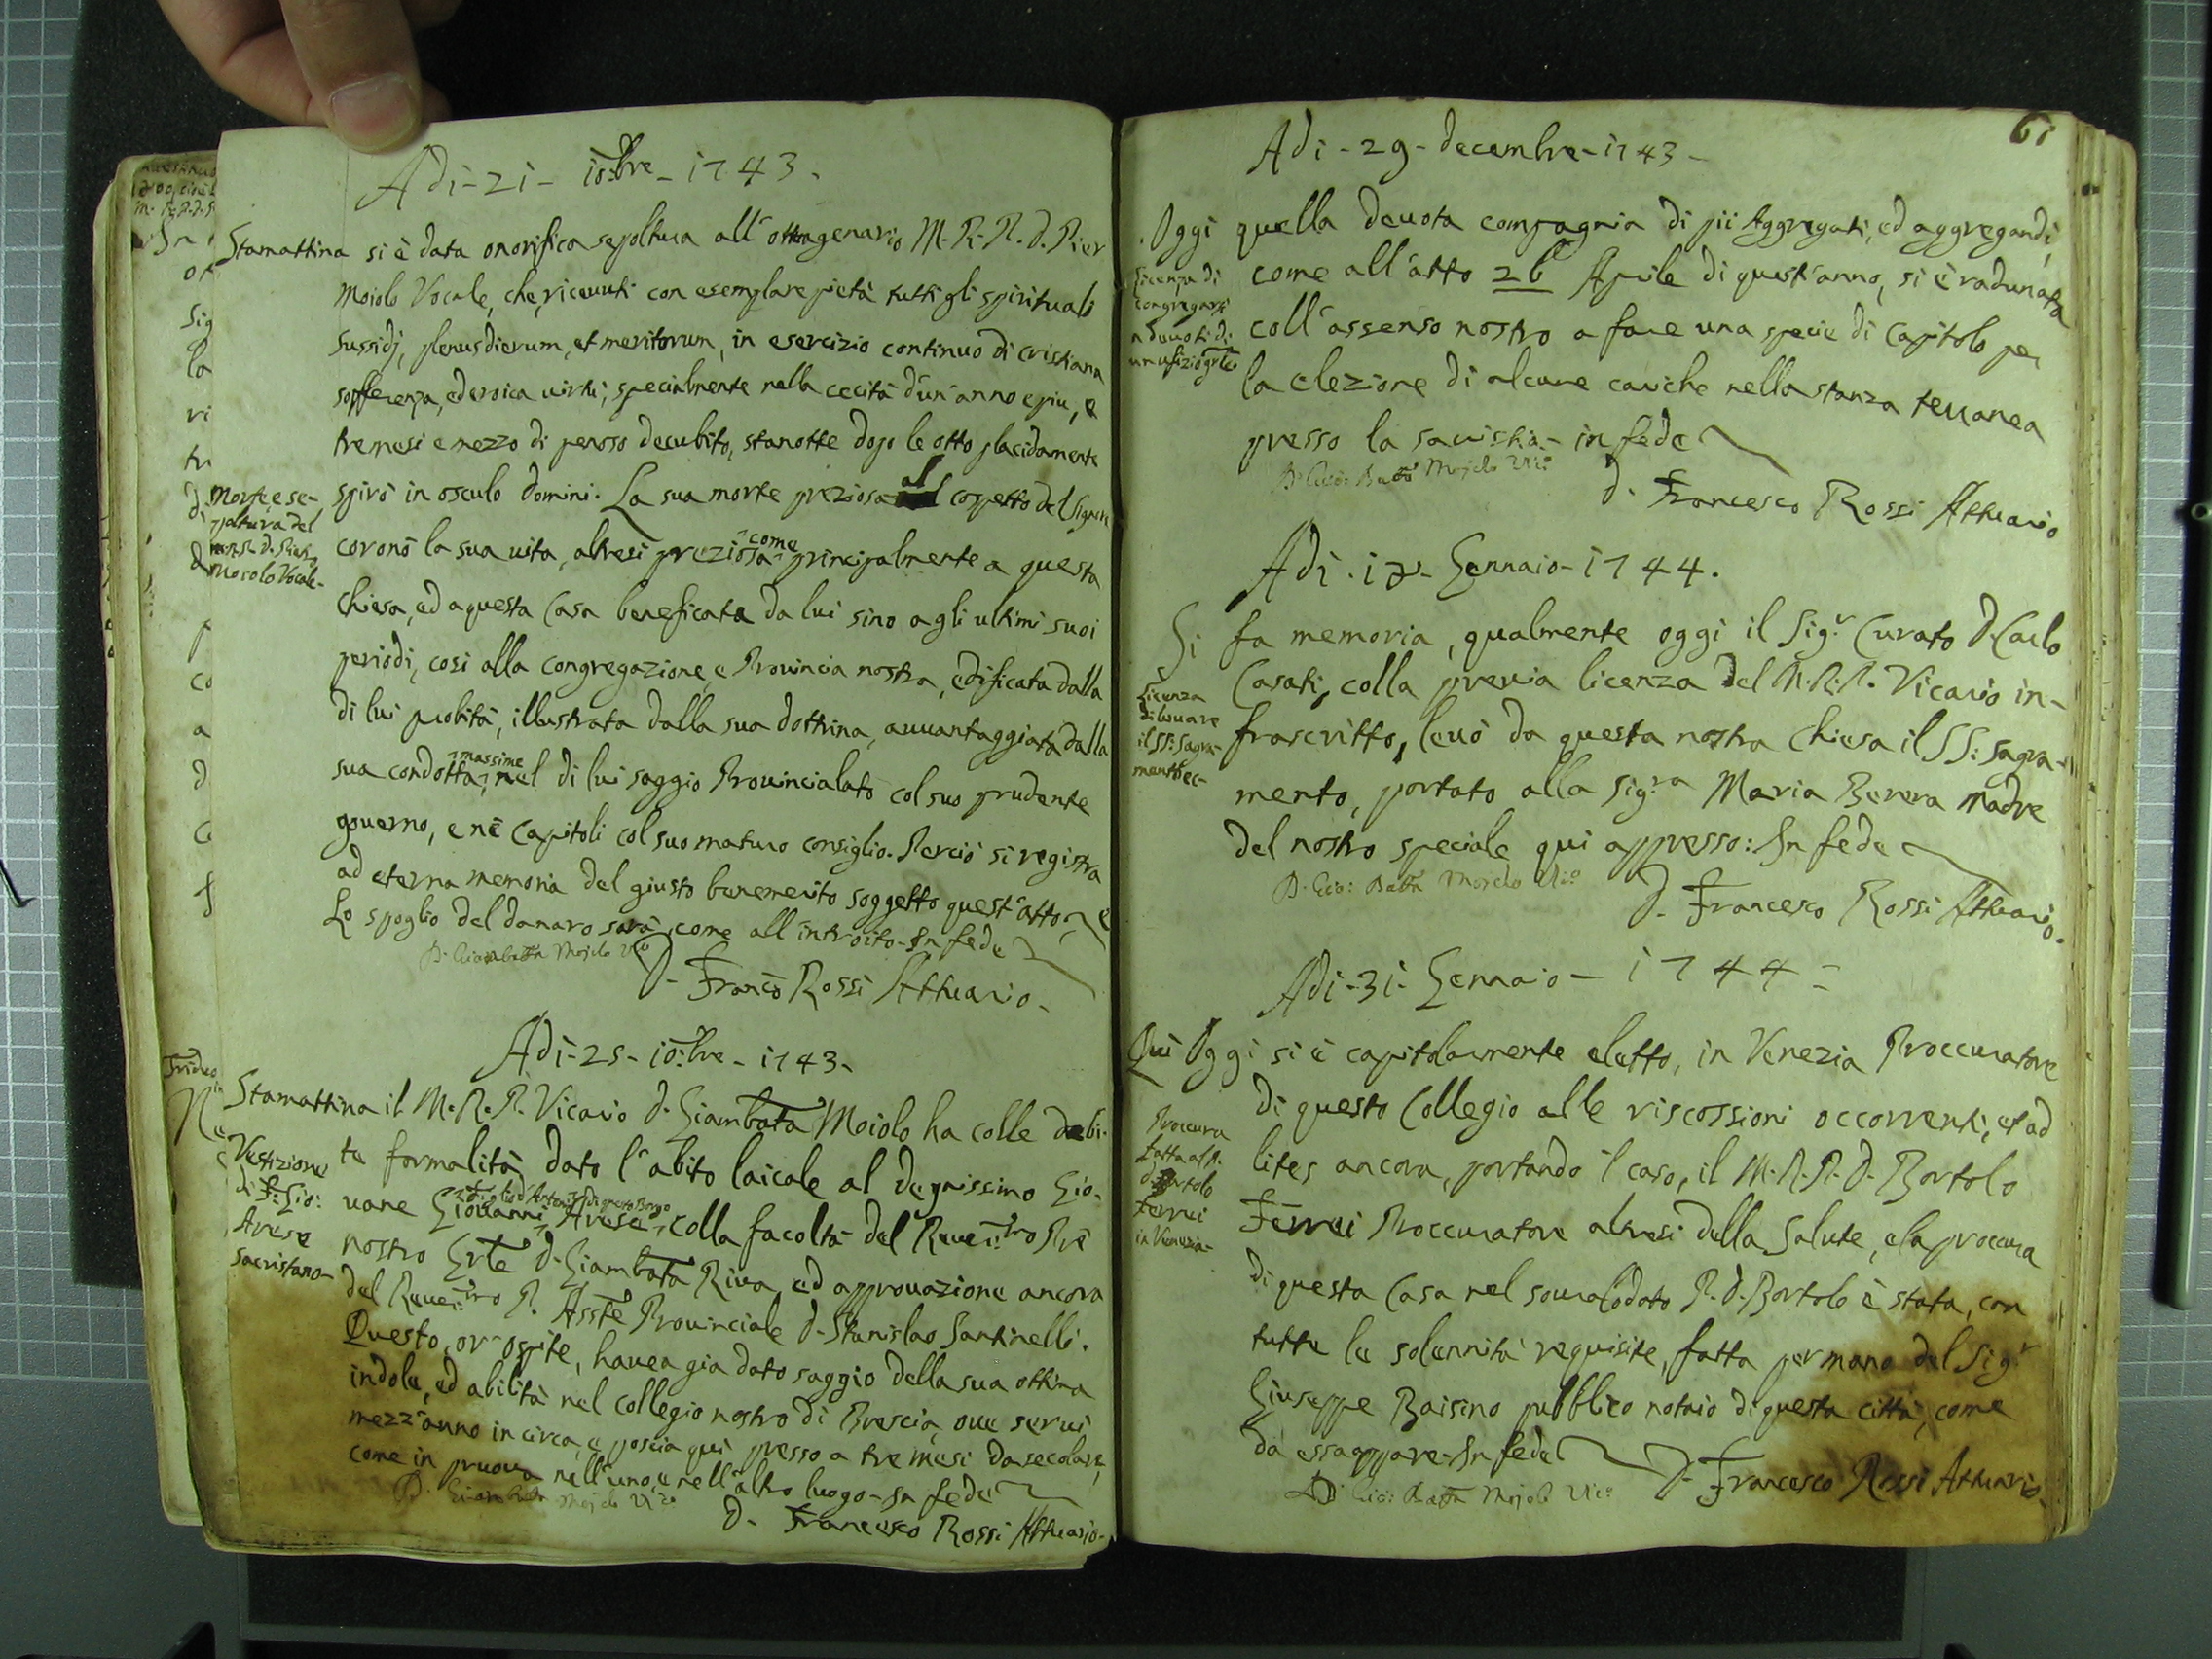 Adi-21- 10:bre- 1743.
Stamattina si è data onorifica sepoltura all'ottuagenario M. R. P. D. Pier
Moiolo Vocale, che, riceuuti con esemplare pietà tutti gli spirituali
sussidj, plenus dierum, et meritorum, in esercizio continuo di cristiana
sofferenza, ed eroica uirtù, specialmente nella cecità d'un'anno e piu, e
tre mesi e mezzo di penoso decubito, stanotte dopo le otto placidamente
spirò in osculo Domini. La sua morte preziosa al cospetto del Signore
Morte, e se-
poltura del
M.R.P. D. Pietro
Moiolo Vocale-
coronò la sua uita, altresi preziosa come principalmente a questa
Chiesa, ed a questa Casa beneficata da lui sino agli ultimi suoi
periodi, cosi alla Congregazione, e Prouincia nostra, edificata dalla
di lui probità, illustrata dalla sua dottrina, auuantaggiata dalla
sua condotta, massime nel di lui saggio Prouincialato col suo prudente
gouerno, e nè Capitoli col suo maturo consiglio. Perciò si registra
ad eterna memoria del giusto benemerito soggetto quest'atto, e
Lo spoglio del danaro sarà come all'introito- In fede
D. Giambatta Mojolo Vic.o
D. Franco Rossi Attuario-
Adi-25- 10:bre- 1743-
Stamattina il M. R. P. Vicario D. Giambata Moiolo ha colle debi-
Vestizione
di F: Gio:
Arese
sacristano-
te formalità dato l'abito laicale al degnissimo Gio-
uane Giouanni figlio d'Antonio di questo Borgo Arese, colla facoltà del Reuer:mo Pre
nostro Grle D. Giambata Riua, ed approuazione ancora
del Reuer:mo P. Asste Prouinciale D. Stanislao Santinelli.
Questo, or' ospite, hauea gia dato saggio della sua ottima
indole, ed abilità nel collegio nostro di Brescia, oue serui
mezz'anno in circa, e poscia qui presso a tre mesi da secolare,
come in pruoua nell'uno, e nell'altro luogo- In fede
D. Giambatta Mojolo Vic.o
D. Francesco Rossi Attuario-
61
Adi-29-decembre-1743-
Oggi quella deuota compagnia di pii Aggregati, ed aggregandi,
Licenza di
congregarsi
a deuoti di
un ufizio grle
come all'atto 26 Aprile di quest'anno, si è radunata
coll'assenso nostro a fare una specie di Capitolo per
la elezione di alcune cariche nella stanza terranea
presso la sacristia- in fede
D. Gio: Batta Mojolo Vic.o
D. Francesco Rossi Attuario
Adi. 17- Gennaio-1744.
Si fa memoria, qualmente oggi il Sig.r Curato D. Carlo
Licenza
di leuare
il SS: Sagra-
mento ec-
Casati, colla preuia licenza del M. R. P. Vicario in-
frascritto, leuò da questa nostra Chiesa il SS: Sagra-
mento, portato alla Sig.ra Maria Berera Madre
del nostro speciale qui appresso: In fede
D. Gio: Batta Mojolo Vic.o
D. Francesco Rossi Attuario.
Adi-31- Gennaio-1744-
Qui Oggi si è capitolarmente eletto, in Venezia Proccuratore
Proccura
fatta al P.
D. Bortolo
Ferrei
in Venezia-
di questo Collegio alle riscossioni occorrenti, et ad
lites ancora, portando il caso, il M. R. P. D. Bortolo
Ferrei Proccuratore altresi della Salute, e la proccura
di questa Casa nel souralodato P. D. Bortolo è stata, con
tutte le solennità requisite, fatta per mano del Sig.r
Giuseppe Baisino pubblico notaio di questa città, come
da essa appare- In fede
D. Gio: Batta Mojolo Vic.o
D. Francesco Rossi Attuario